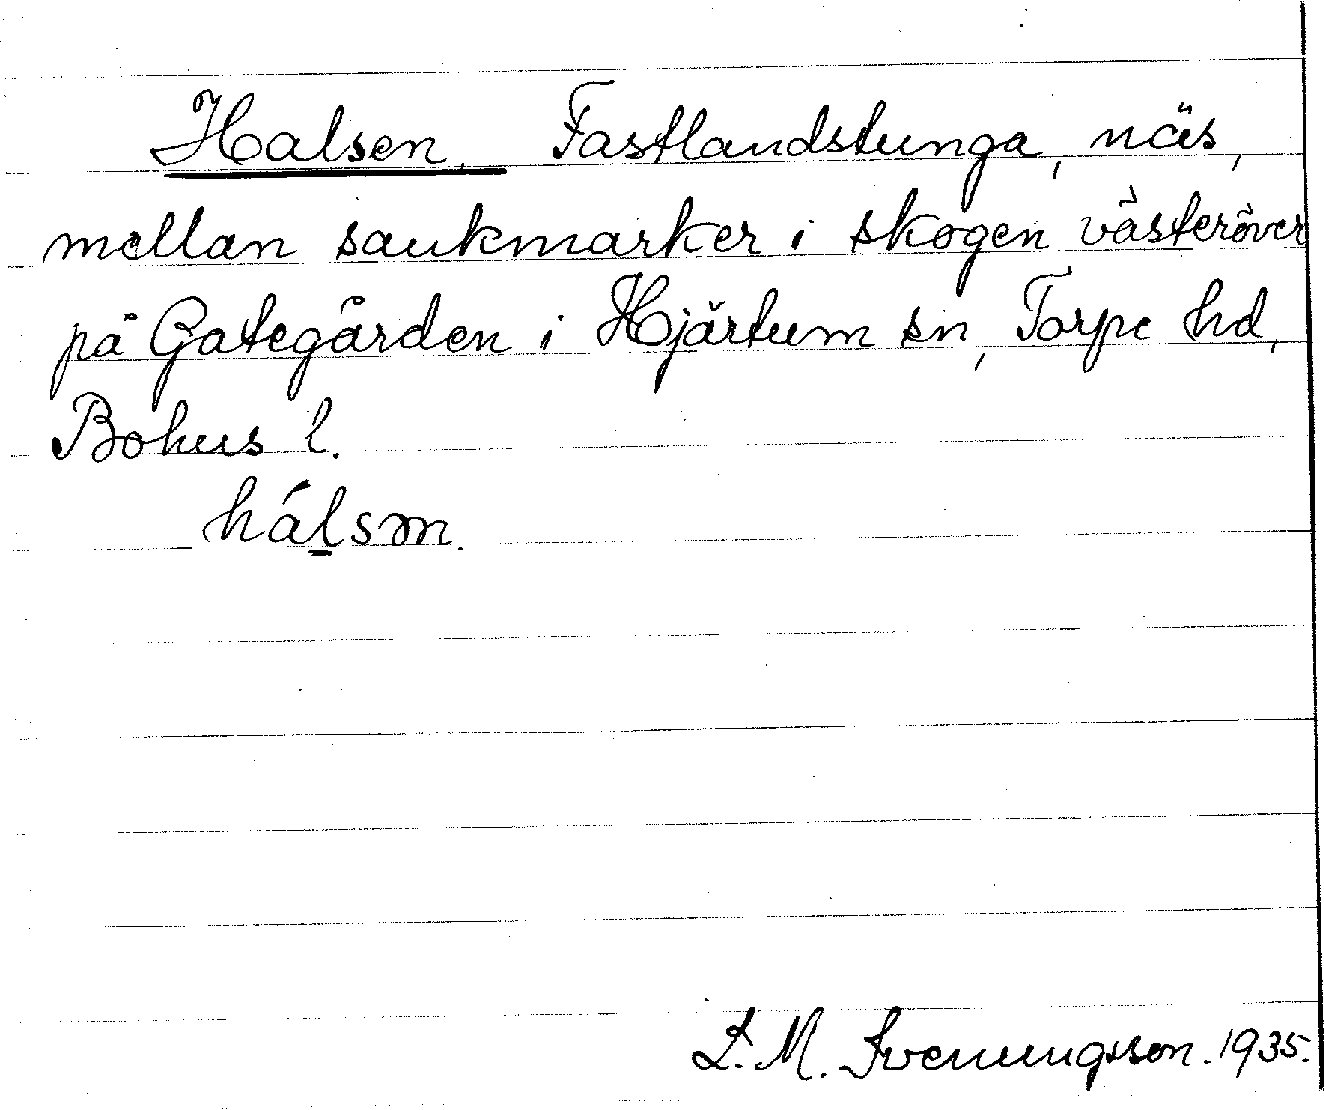 Halsen, Fastlandstunga, näs,
mellan sankmarker i skogen västeröver
på Gategården i Hjärtum sn, Torpe hd,
Bohus l.
hálsm.
L. M. Svenungsson. 1935.